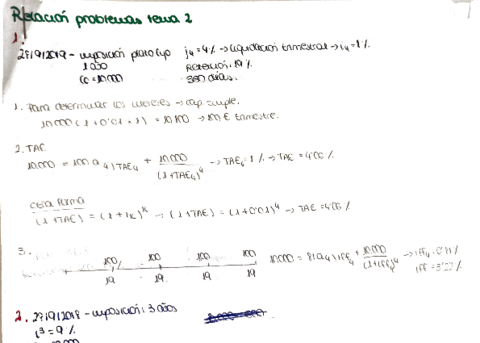 Relación problemas tema 2
1.
27/9/2019 - imposición plazo fijo j4 = 4% → liquidación trimestral → i4 = 1%
1 año Retención: 19%
C0 = 10.000 360 días.
1. Para determinar los intereses → cap. simple.
10.000 (1 + 0'01 · 1) = 10.100 → 100 € trimestre.
2. TAE
10.000 = 100 a4⌉TAE4 + 10.000/(1+TAE4)^4 → TAE4 = 1% → TAE = 4'06%
Otra forma
(1+TAE) = (1+ik)^k → (1+TAE) = (1+0'01)^4 → TAE = 4'06%
3.
100 100 100 100 10.000 = 81 a4⌉
19 19 19 19
2. 27/9/2018 - imposición: 3 años
i3 = 9%